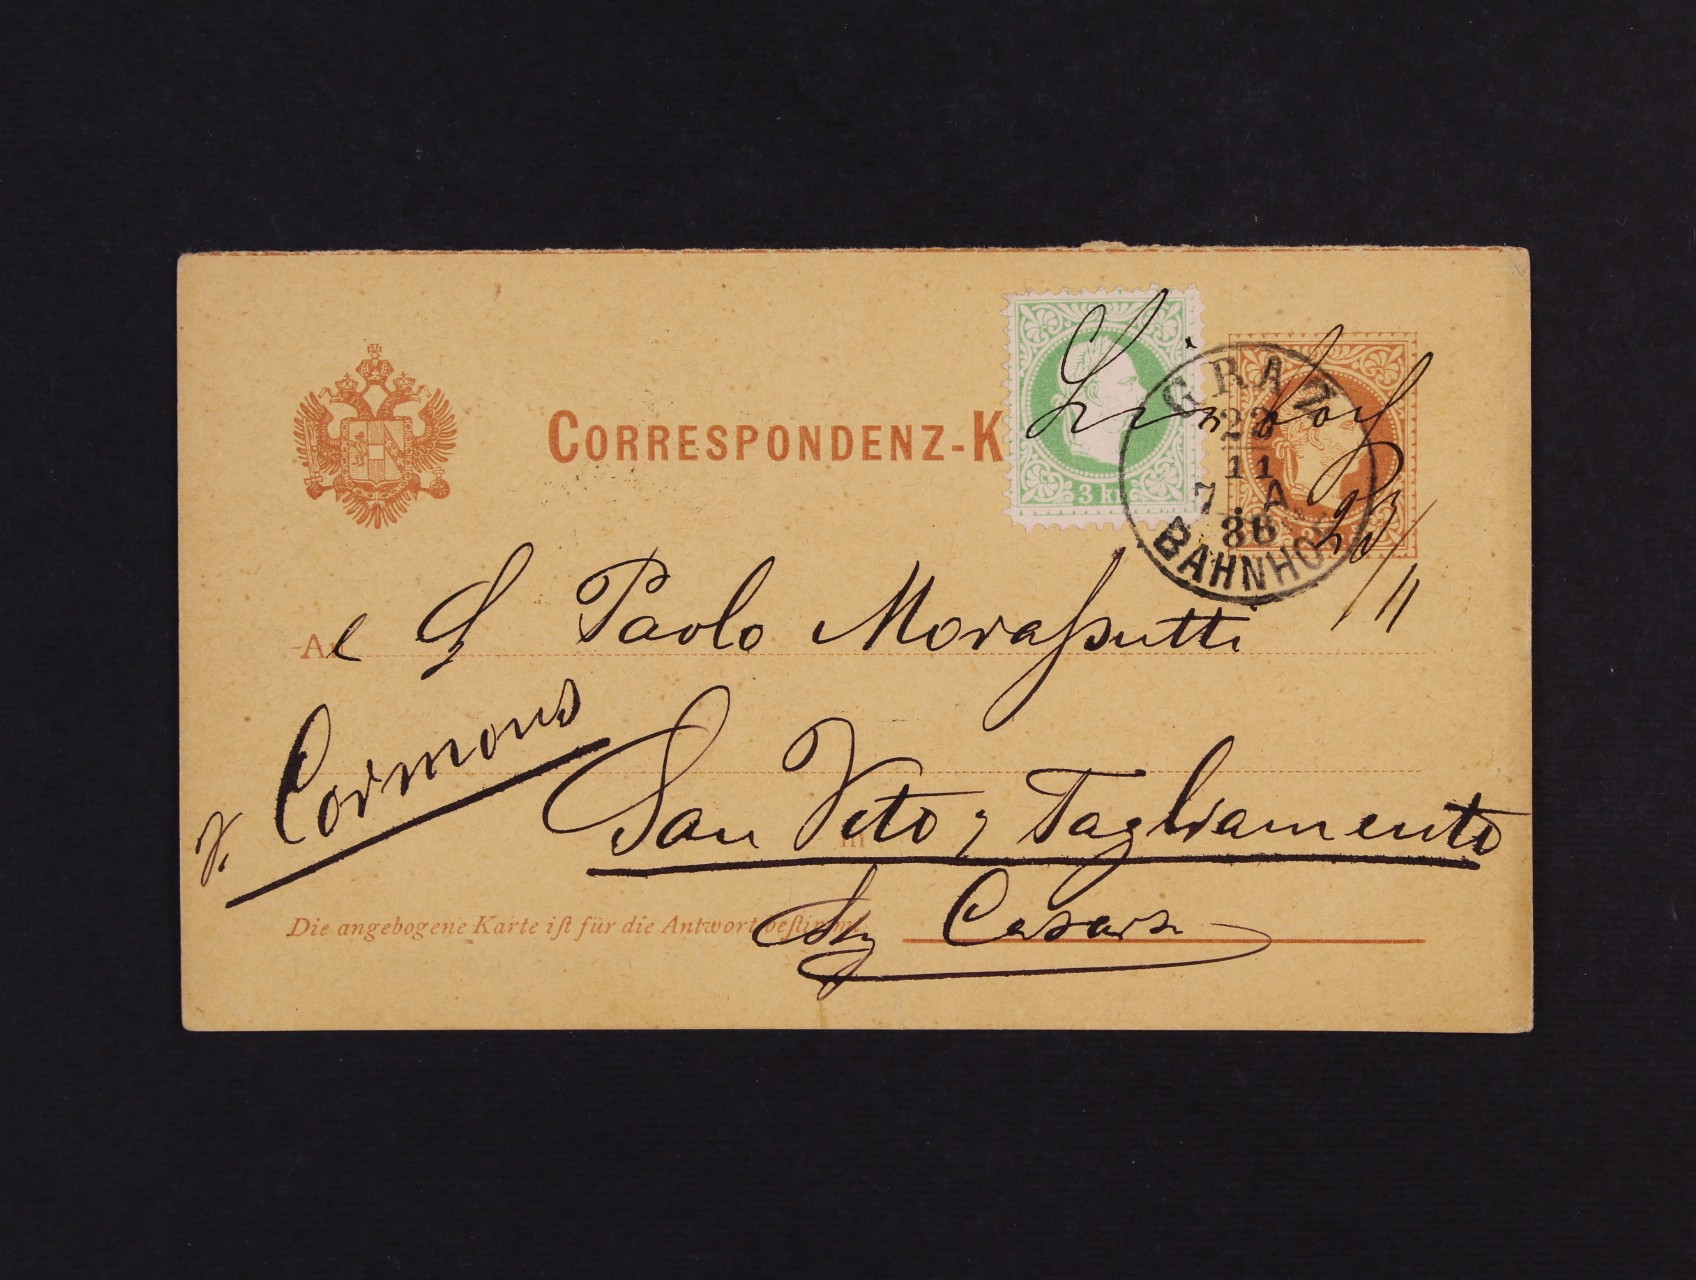 CORRESPONDENZ-K
3 kr
GRAZ
23
11
7. A
86
BAHNHOF
23/11
A
Paolo Morassutti
Cormons
San Vito Tagliamento
in
Die angebogene Karte iſt für die Antwort beſtimmt.
Casarsa